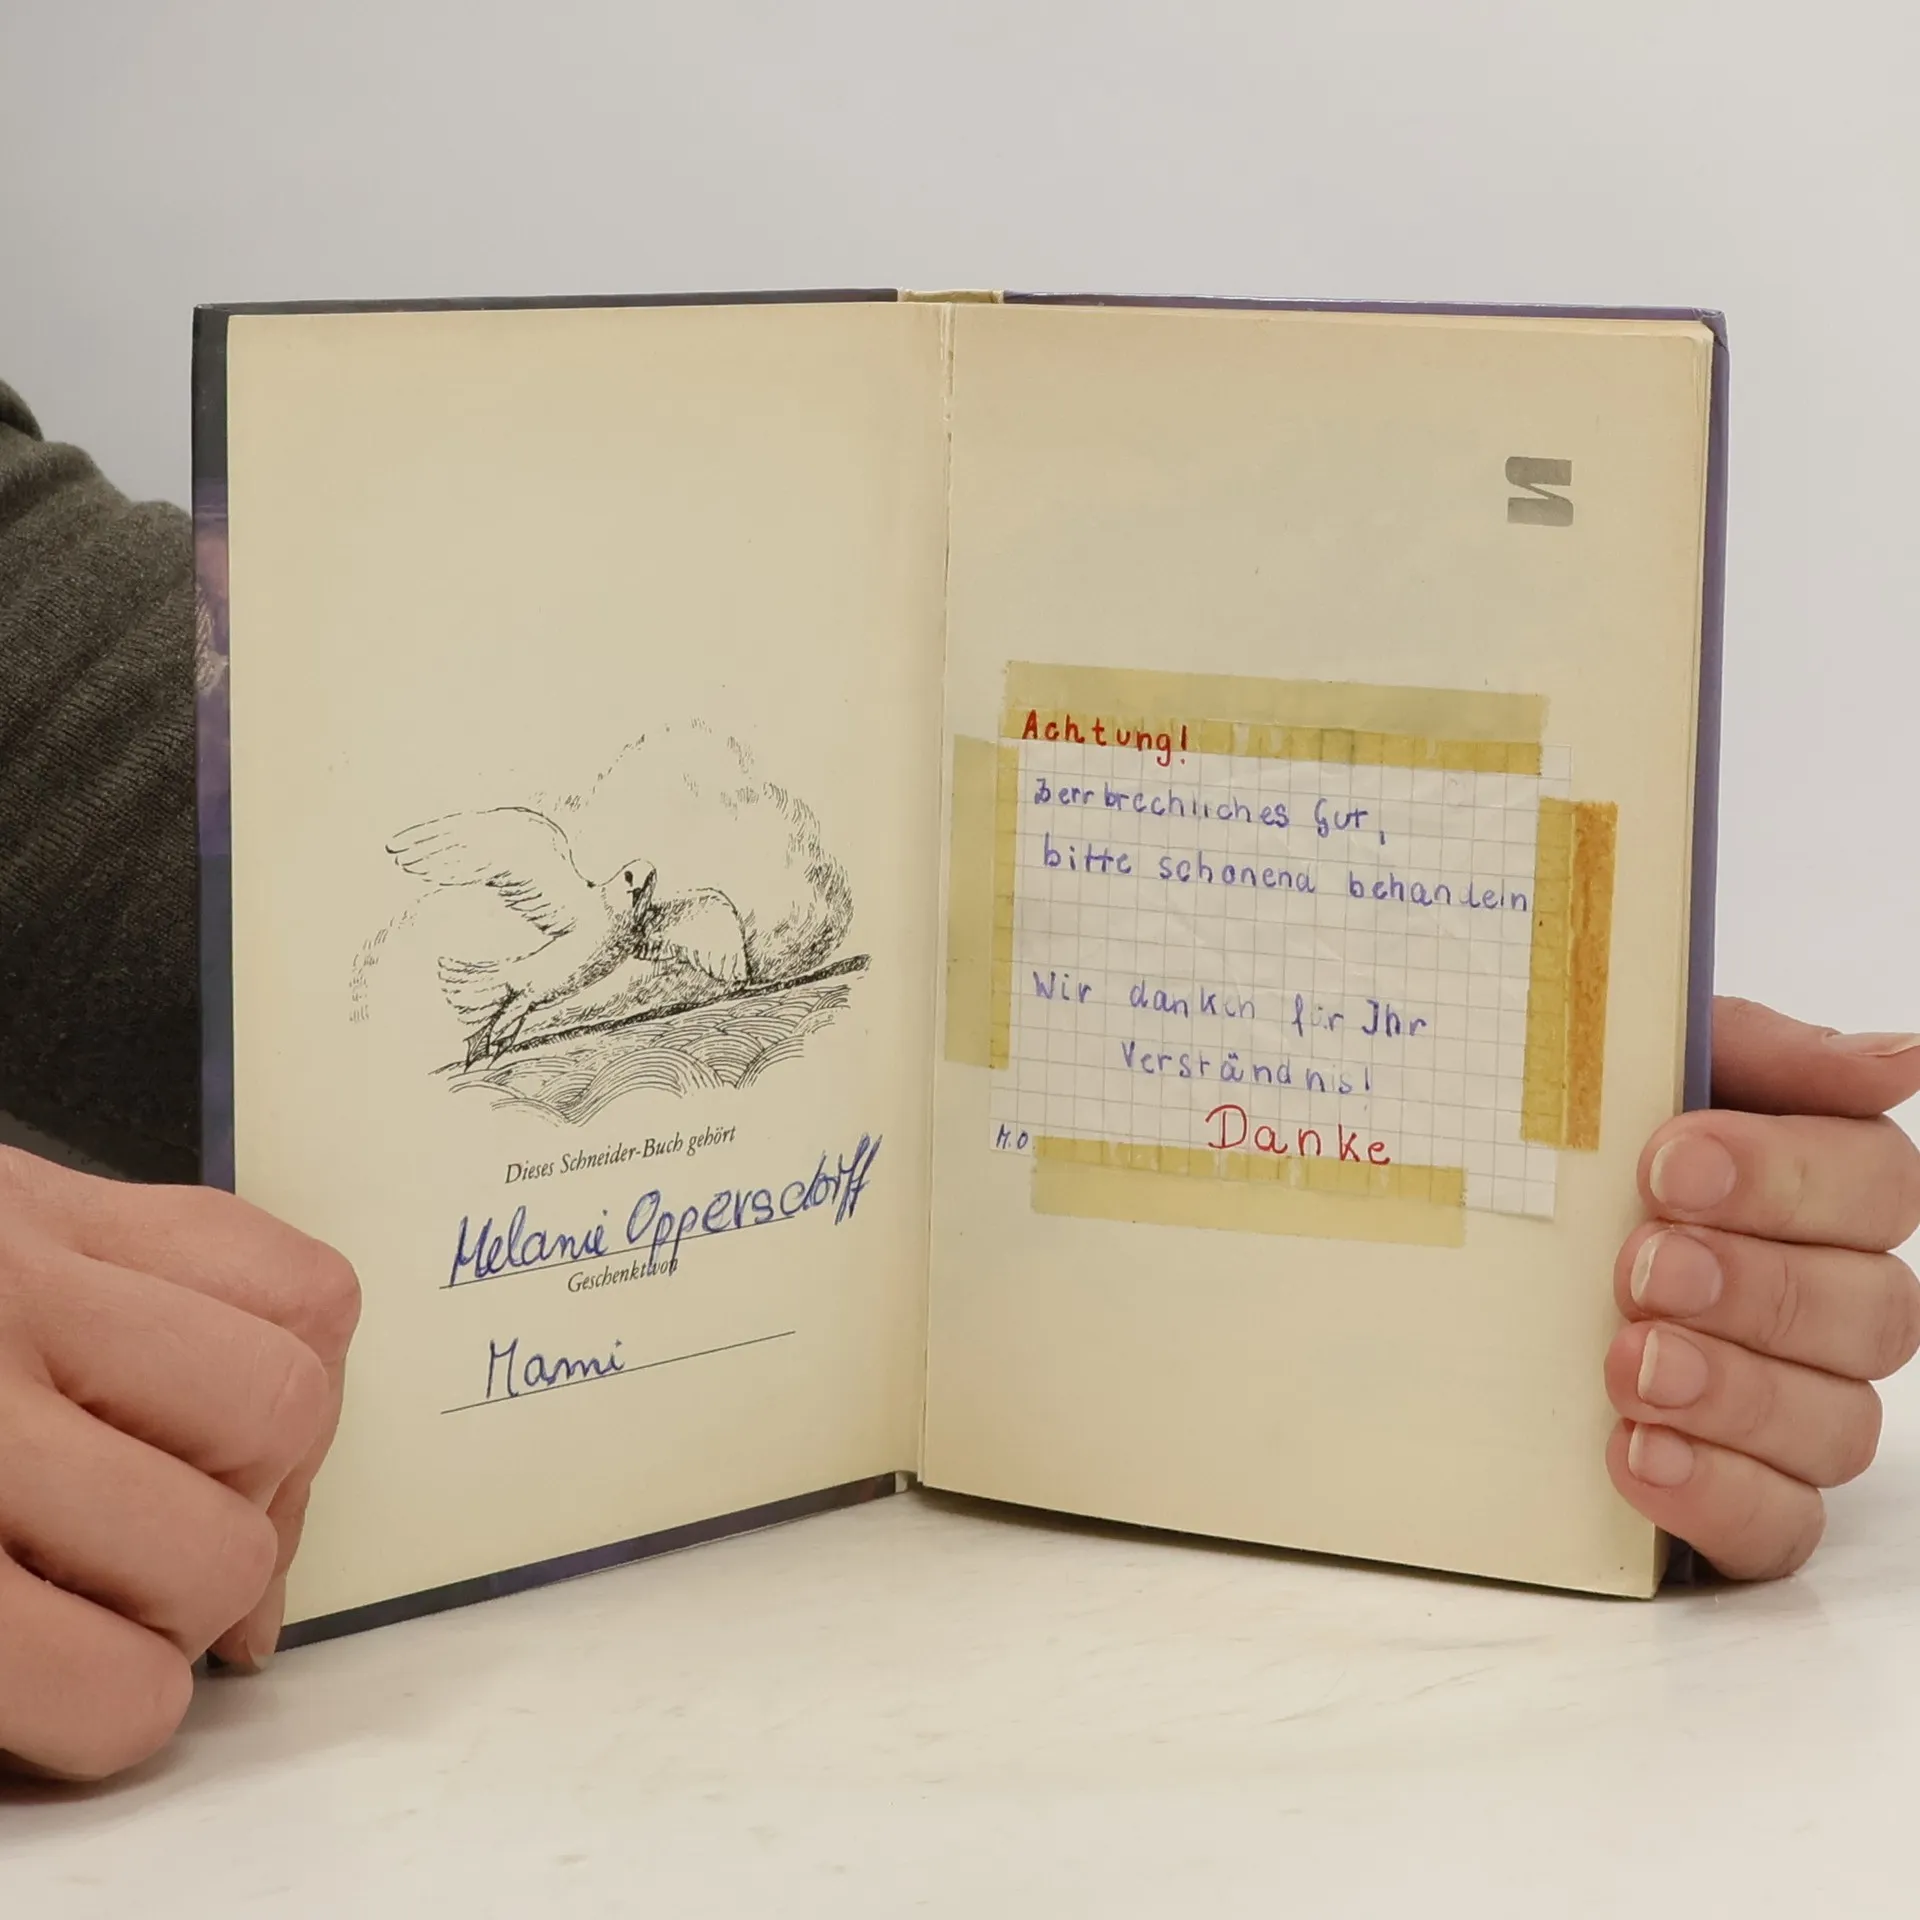 Dieses Schneider-Buch gehört
Melanie Oppersdorff
Geschenkt von
Mami
Achtung!
Zerrbrechliches Gut,
bitte schonend behandeln
Wir danken für Ihr
Verständnis!
Danke
M.O.